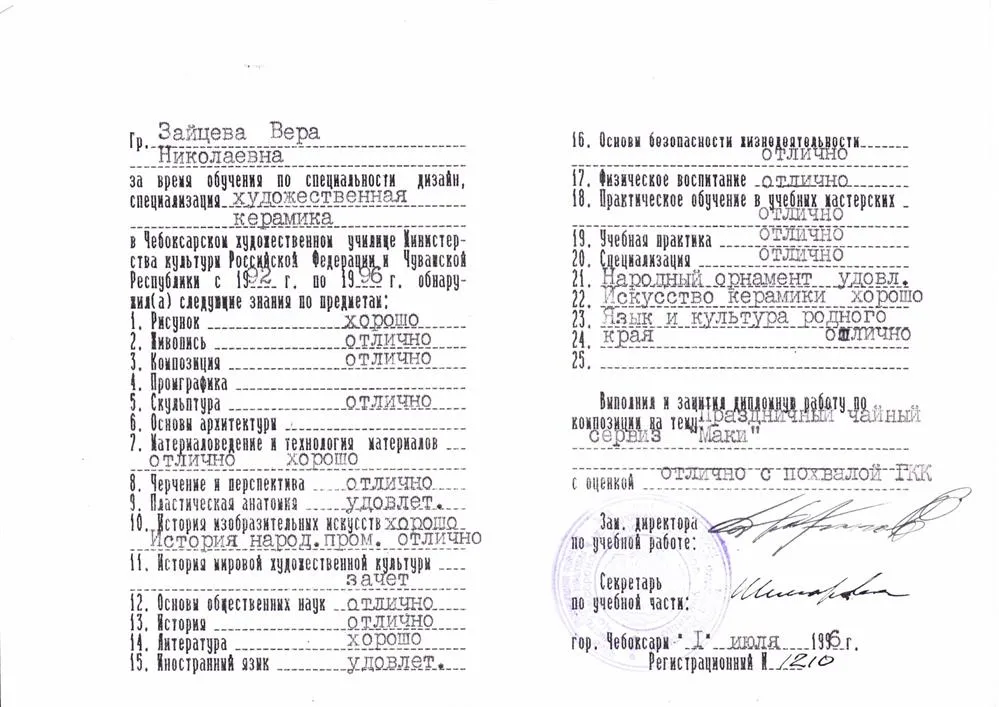 Гр. Зайцева Вера
Николаевна
за время обучения по специальности дизайн,
специализация художественная
керамика
в Чебоксарском художественном училище Министер-
ства культуры Российской Федерации и Чувашской
Республики с 1992 г. по 1996 г. обнару-
жил(а) следующие знания по предметам:
1. Рисунок хорошо
2. Живопись отлично
3. Композиция отлично
4. Промграфика
5. Скульптура отлично
6. Основы архитектуры
7. Материаловедение и технология материалов
отлично хорошо
8. Черчение и перспектива отлично
9. Пластическая анатомия удовлет.
10. История изобразительных искусств хорошо
История народ.пром. отлично
11. История мировой художественной культуры
зачет
12. Основы общественных наук отлично
13. История отлично
14. Литература хорошо
15. Иностранный язык удовлет.
16. Основы безопасности жизнедеятельности
отлично
17. Физическое воспитание отлично
18. Практическое обучение в учебных мастерских
отлично
19. Учебная практика отлично
20. Специализация отлично
21. Народный орнамент удовл.
22. Искусство керамики хорошо
23. Язык и культура родного
24. края отлично
25.
Выполнил и защитил дипломную работу по
композиции на тему "Праздничный чайный
сервиз "Маки"
с оценкой отлично с похвалой ГКК
Зам. директора
по учебной работе:
Секретарь
по учебной части:
гор. Чебоксары "1" июля 1996 г.
Регистрационный № 1210